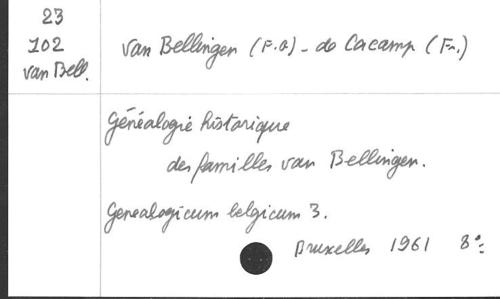 23
102
van Bell.
van Bellingen (F.A) - de Cacamp (Fr.)
Généalogie historique
des familles van Bellingen.
Genealogicum belgicum 3.
Bruxelles 1961 8°: